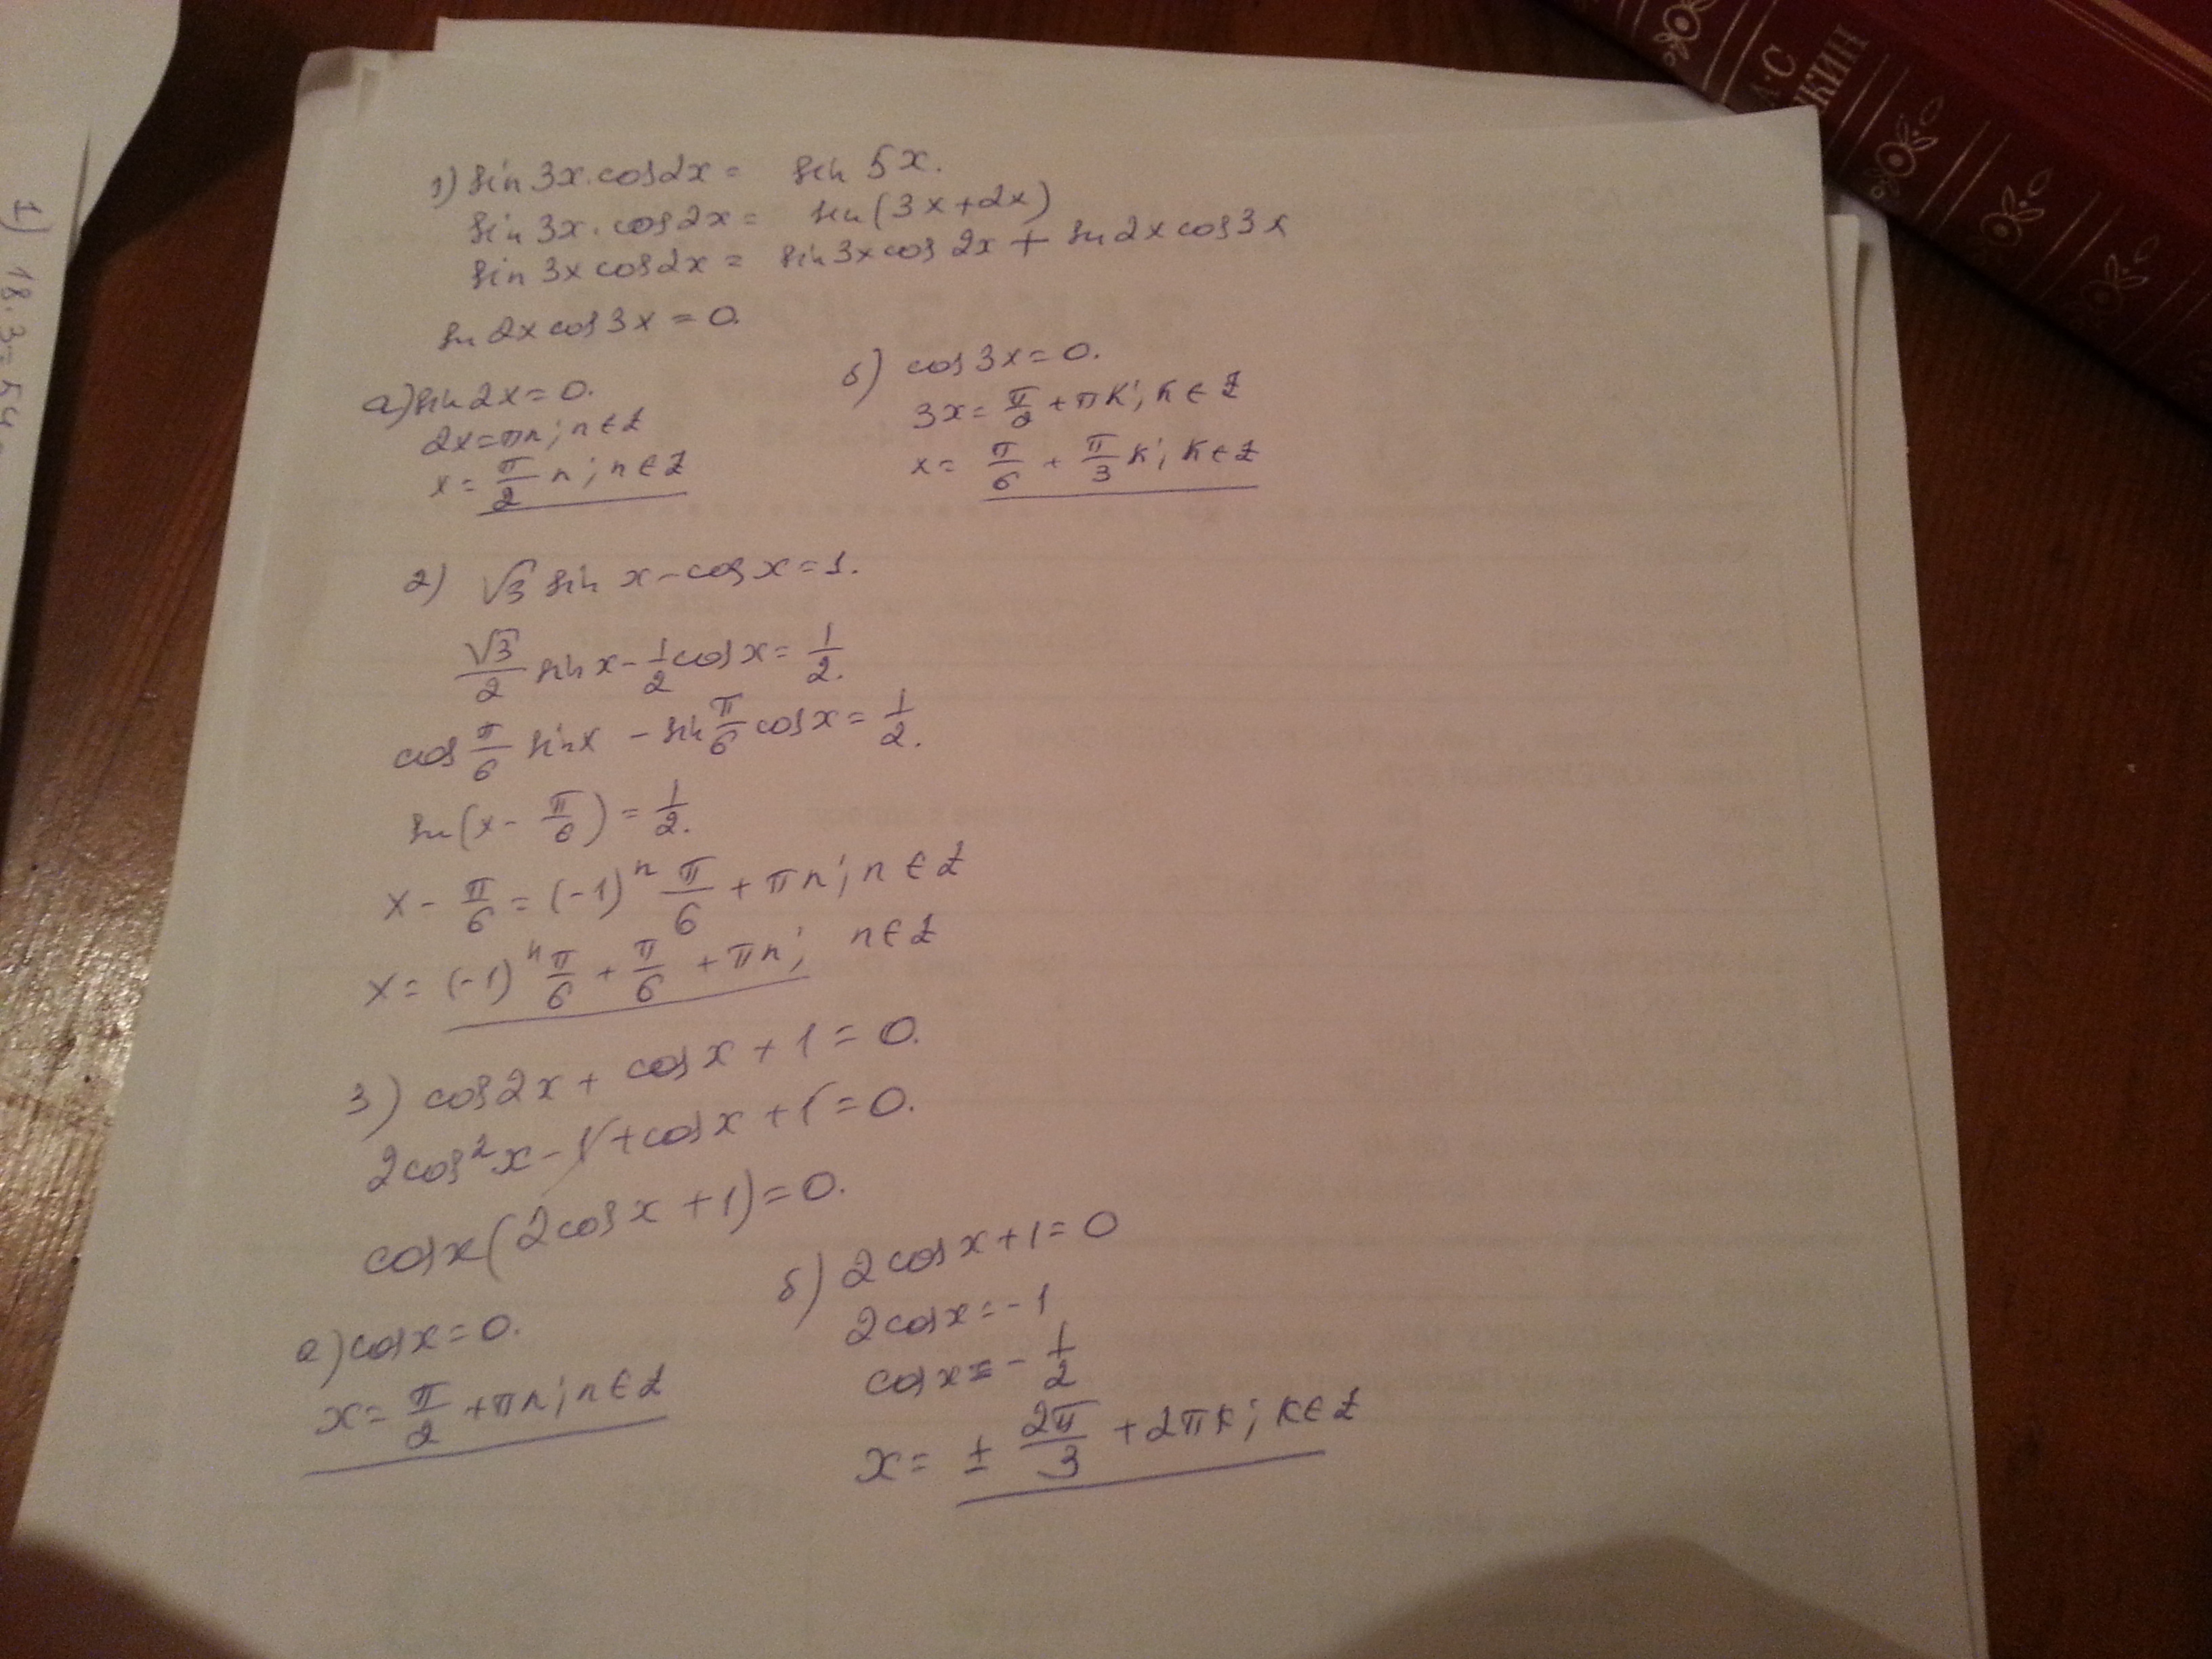 1) sin 3x·cos2x = sin 5x.
sin 3x·cos2x = sin(3x+2x)
sin 3x cos2x = sin3x cos 2x + sin2x cos3x
sin 2x cos 3x = 0.
а) sin 2x = 0.
2x = πn; n ∈ Z
x = π/2 n; n ∈ Z
б) cos 3x = 0.
3x = π/2 + πk; k ∈ Z
x = π/6 + π/3 k; k ∈ Z
2) √3 sin x - cos x = 1.
√3/2 sin x - 1/2 cos x = 1/2.
cos π/6 sin x - sin π/6 cos x = 1/2.
sin(x - π/6) = 1/2.
x - π/6 = (-1)^n π/6 + πn; n ∈ Z
x = (-1)^n π/6 + π/6 + πn; n ∈ Z
3) cos2x + cos x + 1 = 0.
2cos²x - 1 + cos x + 1 = 0.
cos x(2cos x + 1) = 0.
а) cos x = 0.
x = π/2 + πn; n ∈ Z
б) 2cos x + 1 = 0
2cos x = -1
cos x = - 1/2
x = ± 2π/3 + 2πk; k ∈ Z
1) 18·3=54
А·С